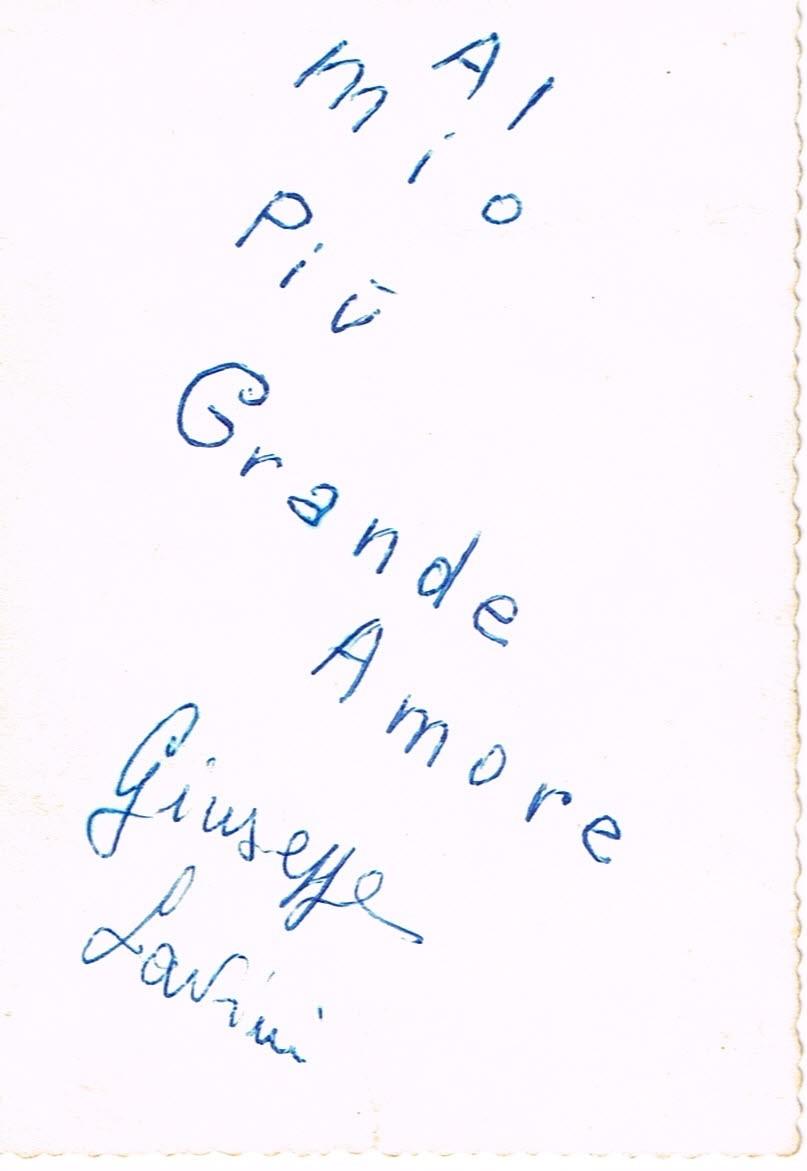 Al
mio
Più
Grande
Amore
Giuseppe